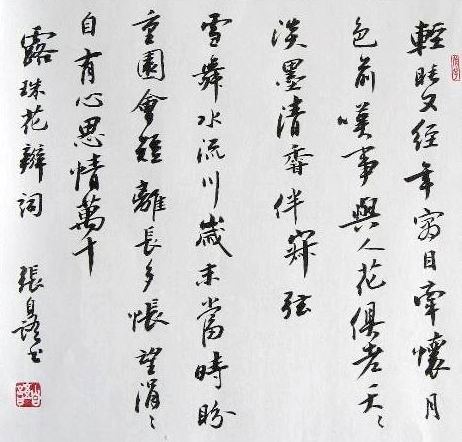 輕眨又經年寄目牽懷月
色前嘆事與人花俱老夭〻
淡墨清霄伴寂弦
雪舞水流川歲末當時盼
重圓會短離長多悵望涓〻
自有心思情萬千
露珠花瓣詞 張自书